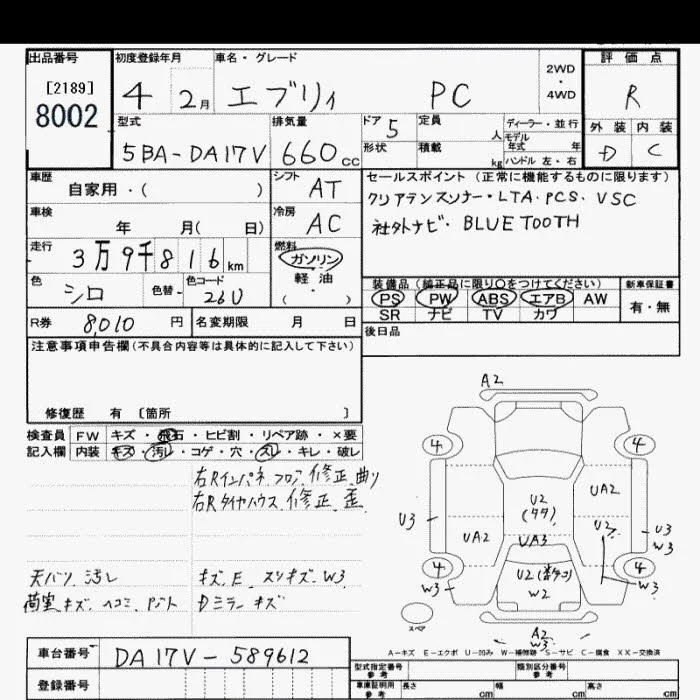 出品番号 初度登録年月 車名・グレード 評価点
[2189] 8002 4 2月 エブリィ PC 2WD・4WD R
型式 排気量 ドア 5 定員 人 ディーラー・並行 外装 内装
5BA-DA17V 660cc 形状 積載 kg モデル年式 年 ハンドル 左・右 D C
車歴 自家用・( ) シフト AT セールスポイント (正常に機能するものに限ります)
車検 年 月( 日) 冷房 AC クリアランスソナー・LTA・PCS・VSC
走行 3万9千816km 燃料 ガソリン 軽油 ( ) 社外ナビ・BLUETOOTH
色 シロ 色替- 色コード 26U 装備品 (純正品に限り○をつけてください) 新車保証書
PS PW ABS エアB AW 有・無
SR ナビ TV カワ
R券 8,010 円 名変期限 月 日 後日品
注意事項申告欄(不具合内容等は具体的に記入して下さい)
修復歴 有 〔箇所 〕
検査員 FW キズ・飛石・ヒビ割・リペア跡・×要
記入欄 内装 キズ・汚レ・コゲ・穴・スレ・キレ・破レ
右Rインパネ、フロア、修正、曲り
右Rタイヤハウス、修正、歪
天バリ、汚レ キズ、E、スリキズ、W3
荷室キズ、ヘコミ、 Dミラー、キズ
A2
4 4
U2 UA2
U3 UA2 UA3 U2 U3 W3
4 U2 W2 4
W3 W3
スペア A2 W3
A-キズ E-エクボ U-凹み W-補修跡 S-サビ C-腐食 XX-交換済
車台番号 DA17V-589612 型式指定番号 参考 類別区分番号 参考
登録番号 車庫証明用 参考 長さ cm 幅 cm 高さ cm